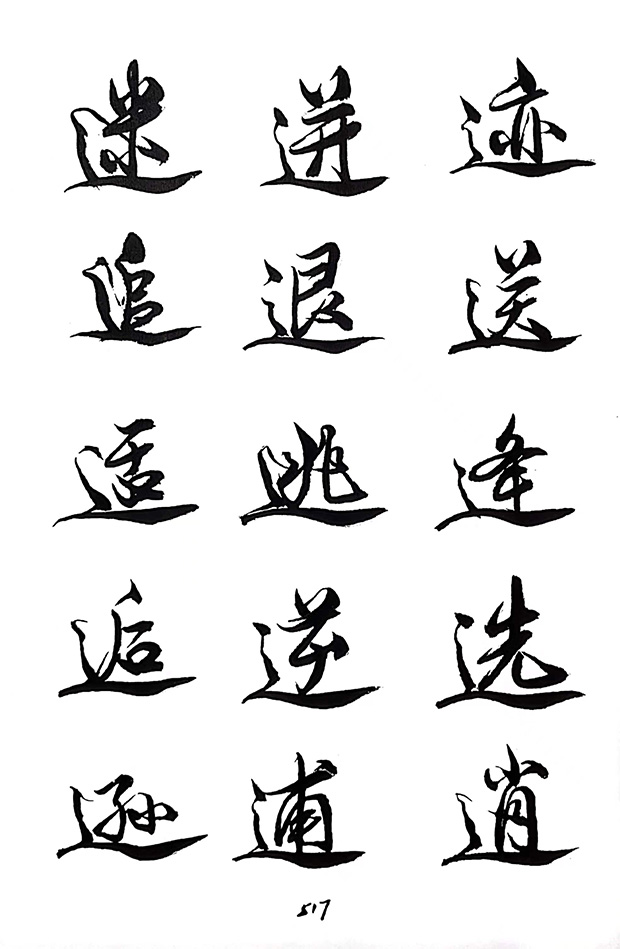 迷 迸 迹
追 退 送
适 逃 逢
逅 逆 选
逊 逋 逍
517